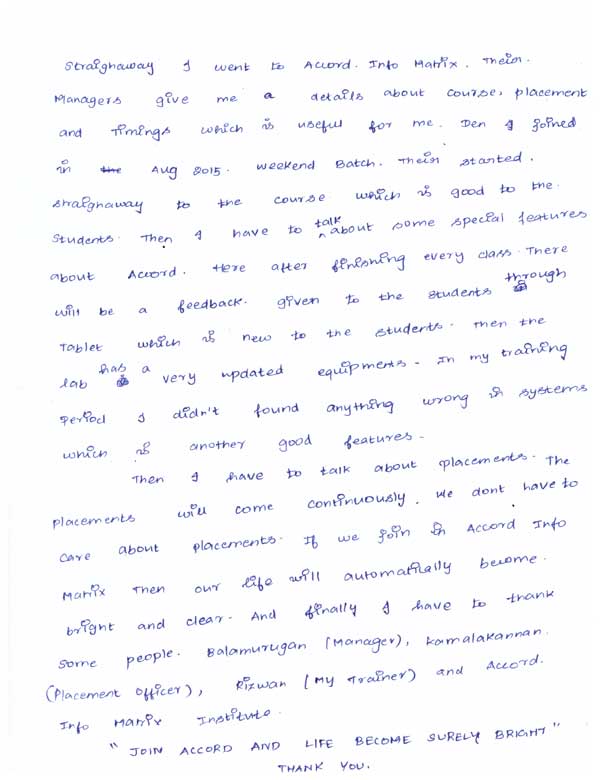 Straighaway I went to Accord. Info Matrix. Their.
Managers give me a details about course, placement
and Timings which is useful for me. Den I joined
in the Aug 2015. weekend Batch. Their started.
straighaway to the course which is good to the.
Students. Then I have to talk about some special features
about Accord. Here after finishing every class. There
will be a feedback. given to the students through
Tablet which is new to the students. Then the
lab has a very updated equipments. In my training
Period I didn't found anything wrong in systems
which is another good features.
Then I have to talk about placements. The
placements will come continuously. We dont have to
care about placements. If we join in Accord Info
Matrix Then our life will automatically become.
bright and clear. And finally I have to thank
some people. Balamurugan (Manager), kamalakannan.
(Placement officer), Rizwan (My Trainer) and Accord.
Info Matrix Institute.
"JOIN ACCORD AND LIFE BECOME SURELY BRIGHT"
THANK YOU.